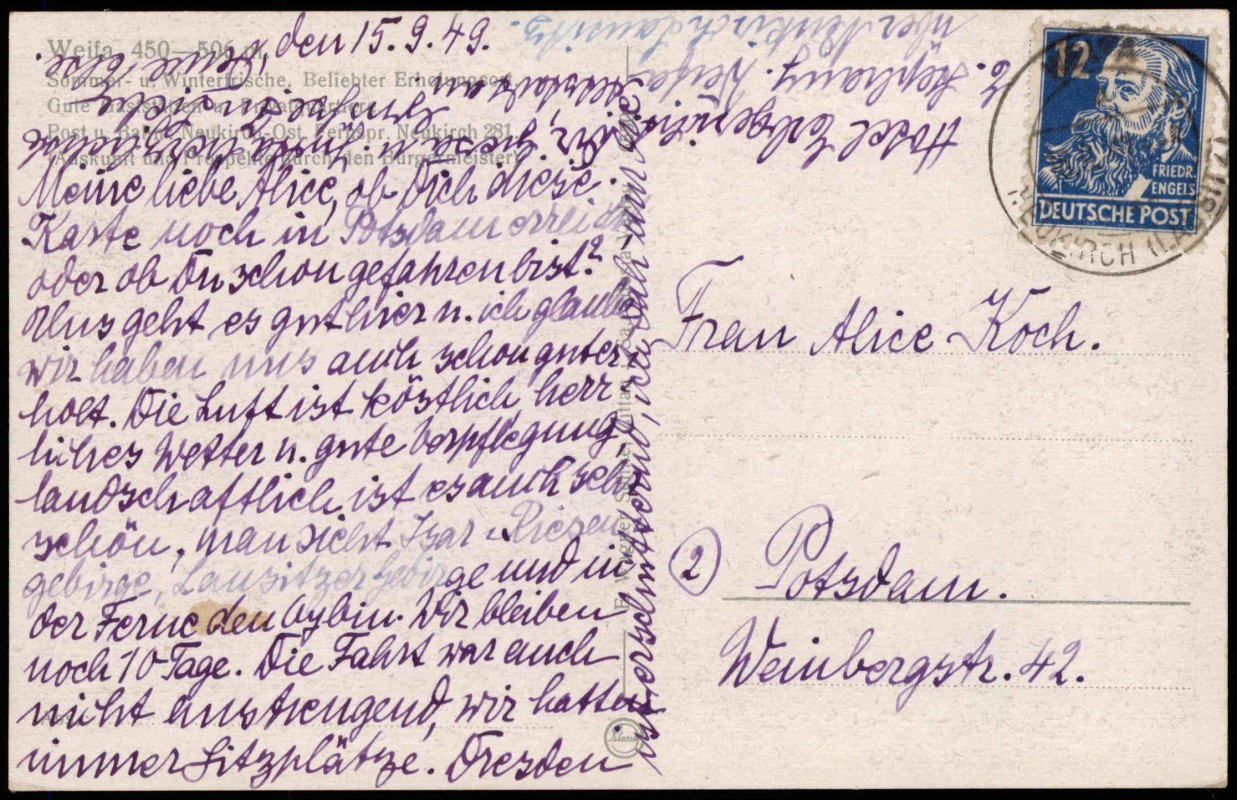 Weifa 450—506 m
Sommer- u. Winterfrische. Beliebter Erholungsort
Post u. Bahn: Neukirch-Ost. Fernspr. Neukirch 281
(Auskunft und Prospekte durch den Bürgermeister)
den 15.9.49.
Meine liebe Alice, ob Dich diese
Karte noch in Potsdam erreicht
oder ob Du schon gefahren bist?
Uns geht es gut hier u. ich glaube
wir haben uns auch schon guter
holt. Die Luft ist köstlich, herr
liches Wetter u. gute Verpflegung
landschaftlich ist es auch sehr
schön, man sieht Isar u. Riesen
gebirge, Lausitzer Gebirge und in
der Ferne den Oybin. Wir bleiben
noch 10 Tage. Die Fahrt war auch
nicht anstrengend, wir hatten
immer Sitzplätze. Dresden
ist erschütternd, wir sah man
Dir, Liesa u.
E. Stephany. Weifa
über Neukirch Lausitz.
Hotel Erbgericht
12
FRIEDR.
ENGELS
DEUTSCHE POST
NEUKIRCH (LAUSITZ)
Frau Alice Koch.
(2) Potsdam.
Weinbergstr. 42.